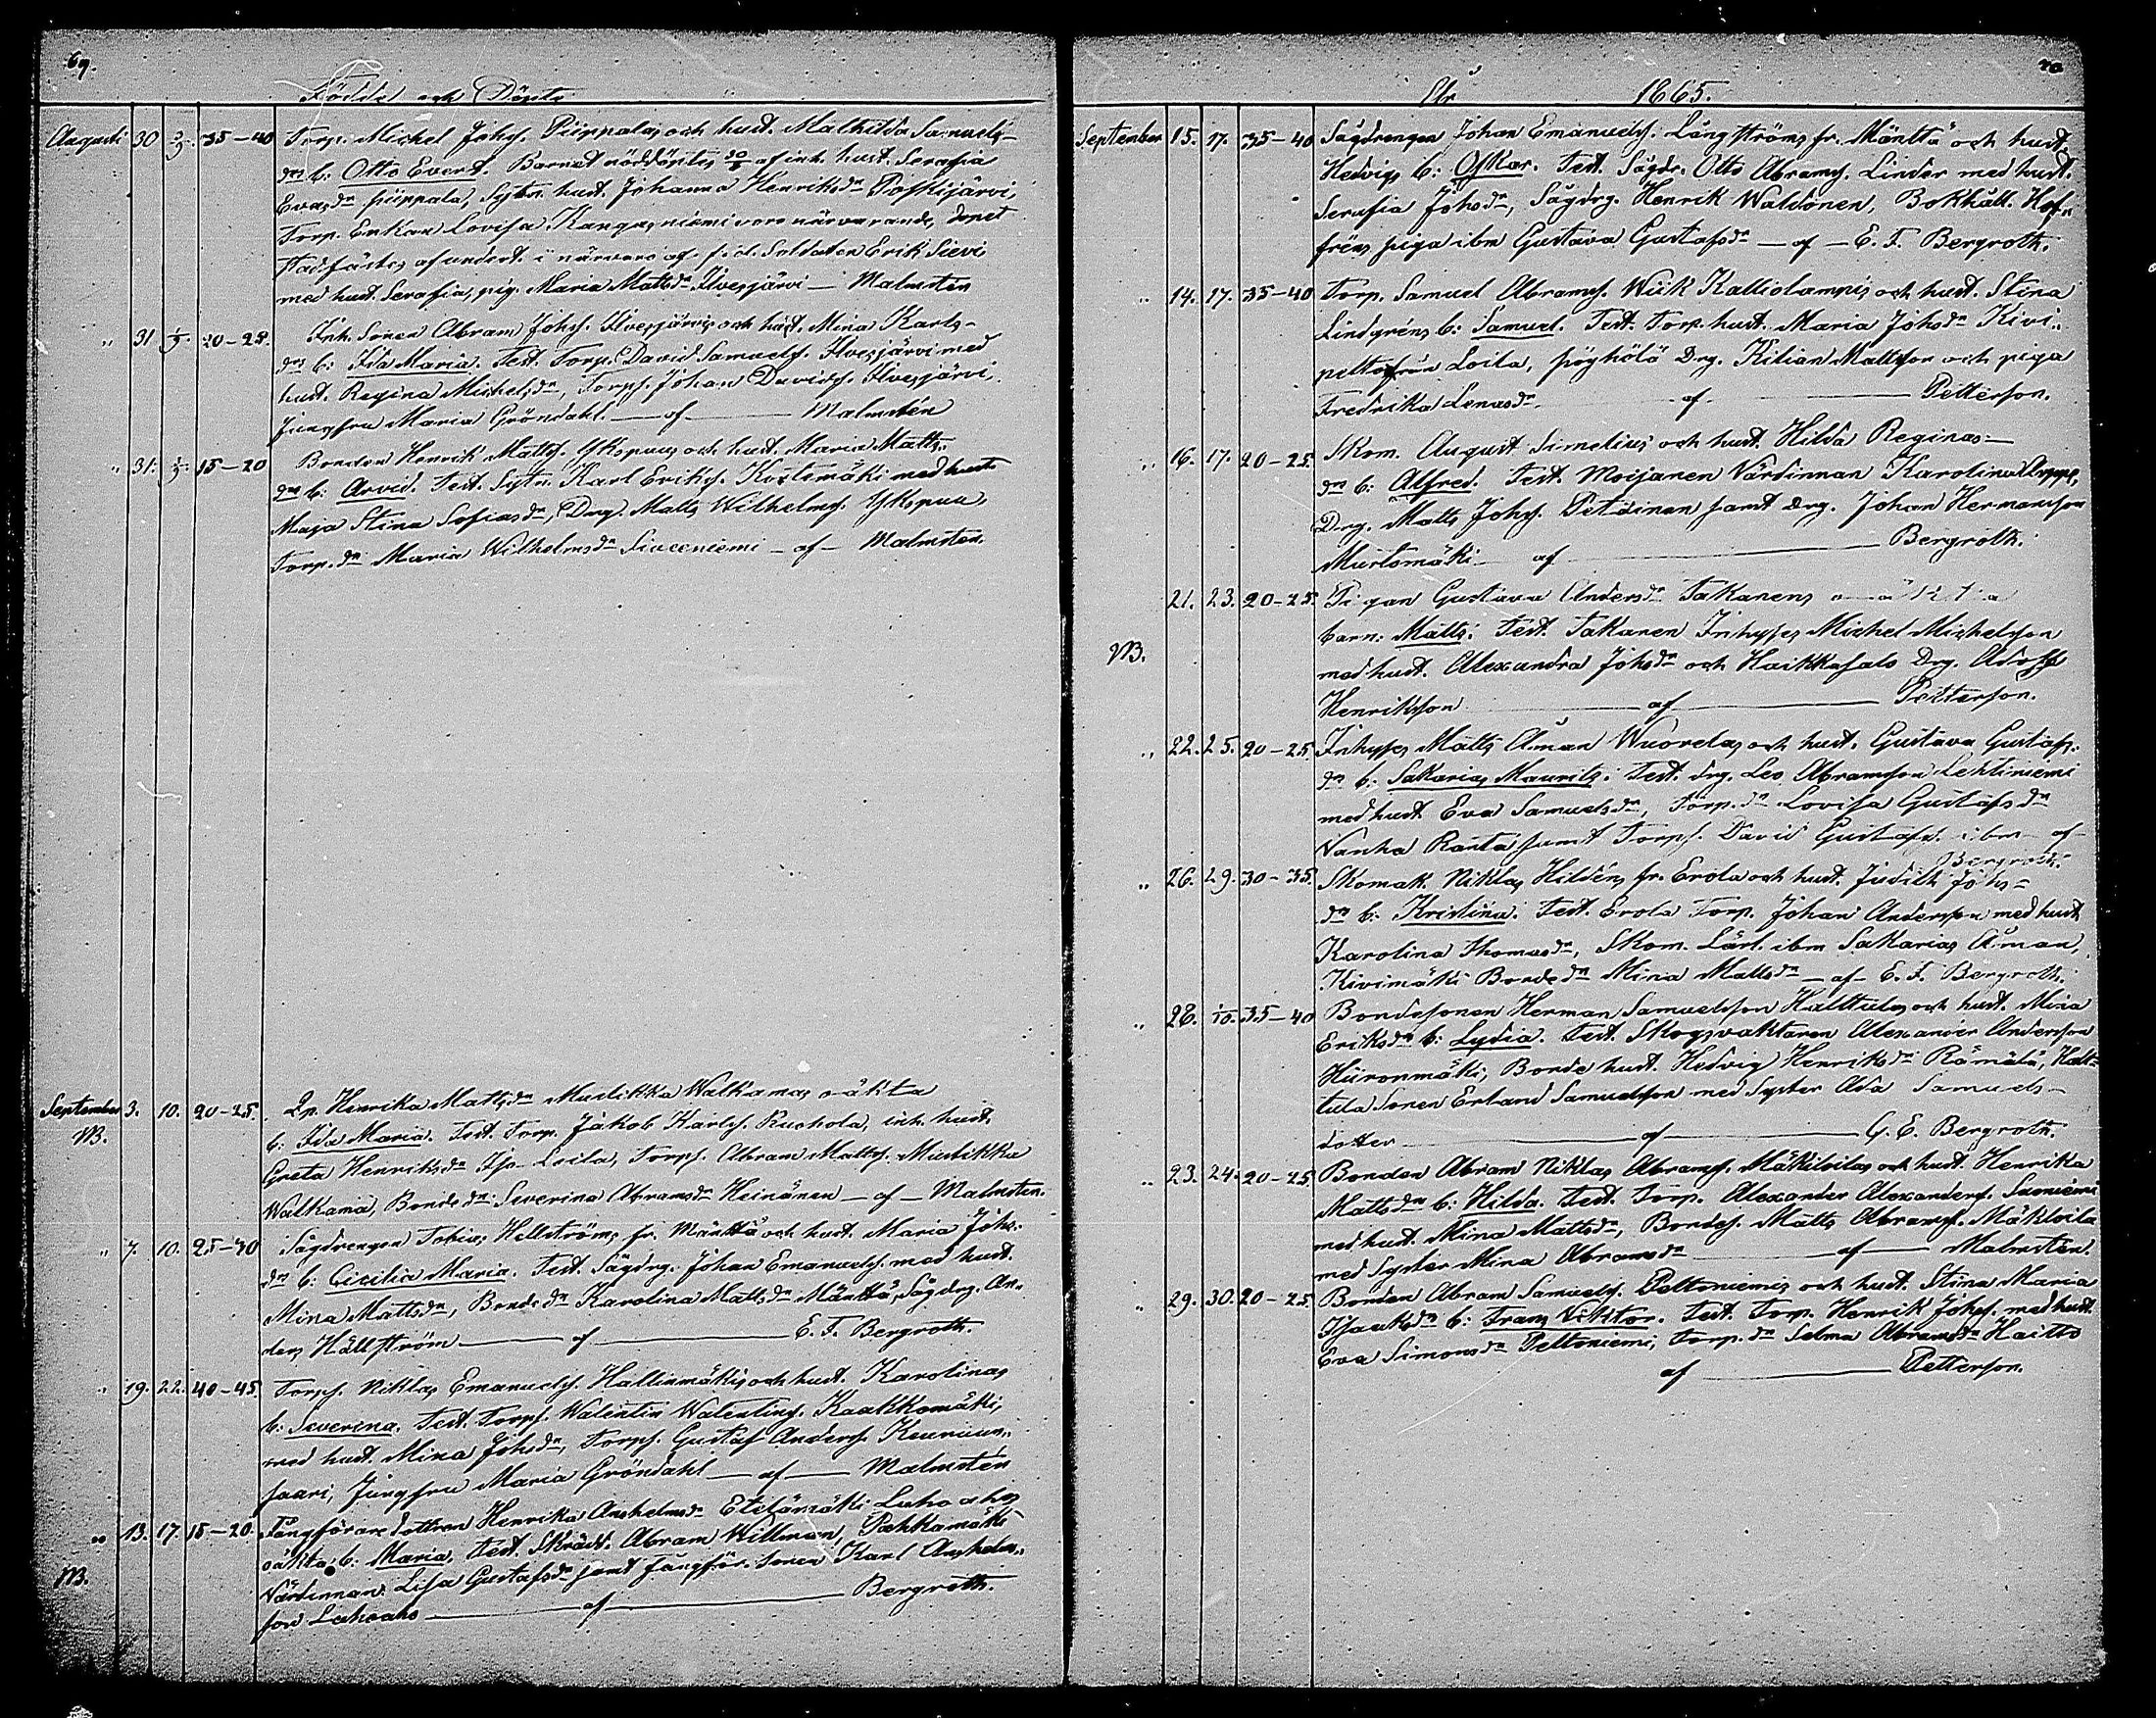 69.
Födde och Döpte
Augusti 30 2/9. 35-40 Torp. Michel Johs. Piippalas och hust. Mathilda Samuels-
dns b: Otto Evert. Barnet nöddöptes 30/8 af inh. hust. Serafia
Evasdn piippala, Sytn. hust. Johanna Henriksdn Poskijärvi,
Torp. Enkan Lovisa Kangasniemi voro närvarande, dopet
stadfästes af undert. i närvaro af f.d. Soldaten Erik Sievi
med hust. Serafia, pig. Maria Mattsdn Ilvesjärvi — Malmstén
" 31 1/9. 20-25. Inh. Sonen Abram Johs. Ilvesjärvis och hust. Mina Karls-
dns b: Ida Maria. Test. Torp. David Samuels. Ilvesjärvi med
hust. Regina Michelsdn, Torps. Johan Davids. Ilvesjärvi,
Jungfru Maria Gröndahl. — af — Malmstén
" 31. 15-20 Bonden Henrik Matts. Yksopuus och hust. Maria Matts-
dns b: Arvid. Test. Sytn. Karl Eriks. Kostamäki med hust.
Maja Stina Sofiasdn, Dng. Matts Wilhelms. Ykspuu,
Torp.dn Maria Wilhelmsdn Siveeniemi — af — Malmstén.
September 3. 10. 20-25. Qp. Henrika Mattsdn Mustikka Walkamas oäkta
NB. b: Ida Maria. Test. Torp. Jakob Karls. Ruohola, inh. hust.
Greta Henriksdn Iso-Loila, Torps. Abram Matts. Mustikka
Walkama, Bondedn: Severina Abramsdn Heinänen — af — Malmstén.
" 7. 10. 25-30 Sågdrengen Tobias Hellströms fr. Mänttä och hust. Maria Johs.
dns b: Cicilia Maria. Test. Sågdrg. Johan Emanuels. med hust.
Mina Mattsdn, Bondedn Karolina Mattsdn Mänttä, Sågdrg. An-
ders Hällström — af — E. F. Bergroth.
" 19. 22. 40-45. Torps. Niklas Emanuels. Hallinmäkis och hust. Karolinas
b: Severina. Test. Torps. Walentin Walentins. Kaakkomäki,
med hust. Mina Johsdn, Torps. Gustaf Anders. Keuruun-
saari, Jungfru Maria Gröndahl — af — Malmstén
" 13. 17. 15-20. Fångförare dottren Henrika Anshelmsdn Etelämäki Luho ahos
NB. oäkta b: Maria. Test. Skrädt. Abram Willman, Pahkamäki
Värdinnan Lisa Gustafsdn samt fångför. sonen Karl Anshelms-
son Luhoaho — af — Bergroth.
70
År 1865.
September 15. 17. 35-40 Sågdrengen Johan Emanuels. Långströms fr. Mänttä och hust.
Hedvigs b: Oskar. Test. Sågdr. Otto Abrams. Linder med hust.
Serafia Johsdn, Sågdrg. Henrik Waldonen, Bokhåll. Hof-
fréns piga ibm Gustava Gustafsdn — af — E. F. Bergroth.
" 14. 17. 35-40 Torp. Samuel Abrams. Wiik Kalliolampis och hust. Stina
Lindgréns b: Samuel. Test. Torp. hust. Maria Johsdn Kivi-
pelto från Loila, pöyhölä Drg. Kilian Mattsson och piga
Fredrika Lenasdn. — af — Petterson.
" 16. 17. 20-25. Skom. August Simelius och hust. Hilda Reginas-
dns b: Alfred. Test. Moijanen Värdinnan Karolina
Drg. Matts Johs. Petäinen samt drg. Johan Hermansson
Murtomäki — af — Bergroth.
21. 23. 20-25. Pigan Gustava Andersdn Takanens oäkta
NB. barn: Matts. Test. Takanen Inhyses Michel Michelsson
med hust. Alexandra Johsdn och Haikkasalo Drg. Adolf
Henriksson — af — Petterson.
" 22. 25. 20-25. Inhyses Matts Åman Wuorelas och hust. Gustava Gustafs-
dn b: Sakarias Maurits. Test. drg. Leo Abramsson Lehtiniemi
med hust Eva Samuelsdn, Torp.dn Lovisa Gustafsdn
Vanha Ranta samt Torps. David Gustafss. ibm — af —
Bergroth.
" 26. 29. 30-35. Skomak. Niklas Hildéns fr. Erola och hust. Judith Johs-
dn b: Kristina. Test. Erola Torp. Johan Andersson med hust
Karolina Thomasdn, Skom. Lärl. ibm Sakarias Åman,
Kivimäki Bondedn Mina Mattsdn — af — E. F. Bergroth.
" 28. 1/10. 35-40 Bondesonen Herman Samuelsson Halttulas och hust. Mina
Eriksdn b: Lydia. Test. Skogsvaktaren Alexander Andersson
Hiironmäki, Bonde hust. Hedvig Henriksdn Rämälä, Halt-
tula Sonen Erland Samuelsson med Syster Ada Samuels-
dotter — af — G. E. Bergroth.
" 23. 24. 20-25 Bonden Abram Niklas Abrams. Mäkiloilas och hust. Henrika
Mattsdn b: Hilda. Test. Torp. Alexander Alexanders. Saoniemi
med hust. Mina Mattsdn, Bondes. Matts Abrams. Mäkloila
med Syster Mina Abramsdn — af — Malmstén.
" 29. 30. 20-25. Bonden Abram Samuels. Peltoniemis och hust. Stina Maria
Isaaksdn b: Frans Viktor. Test. Torp. Henrik Johs. med hust.
Eva Simonsdn Peltoniemi, Torp.dn Selma Abramsdn Haitto
af — Petterson.